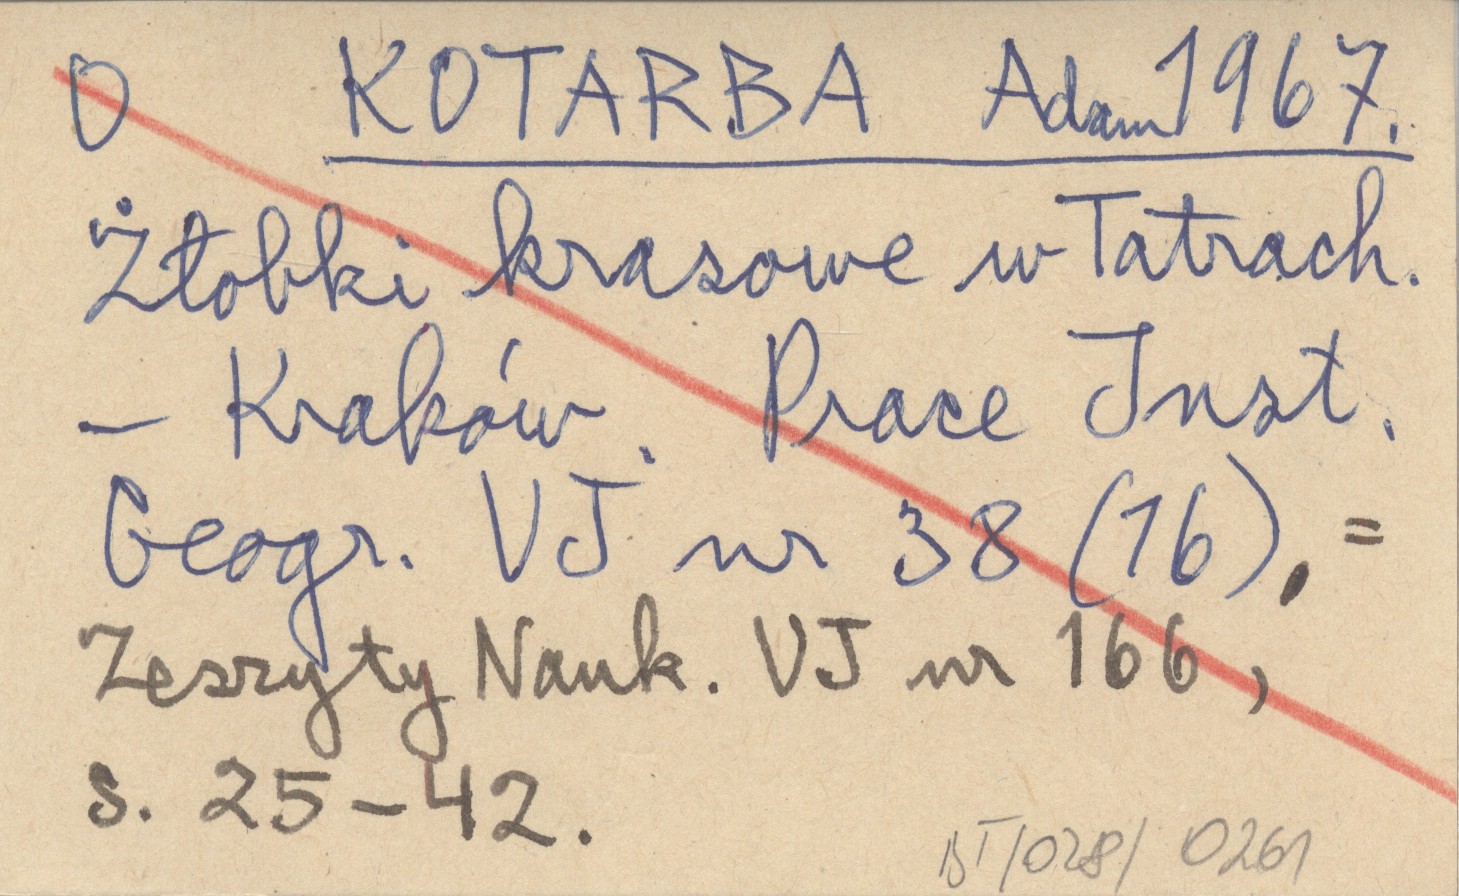 O KOTARBA Adam 1967.
Żłobki krasowe w Tatrach.
– Kraków. Prace Inst.
Geogr. UJ nr 38 (16), =
Zeszyty Nauk. UJ nr 166,
s. 25–42.
BT/028/ 0261